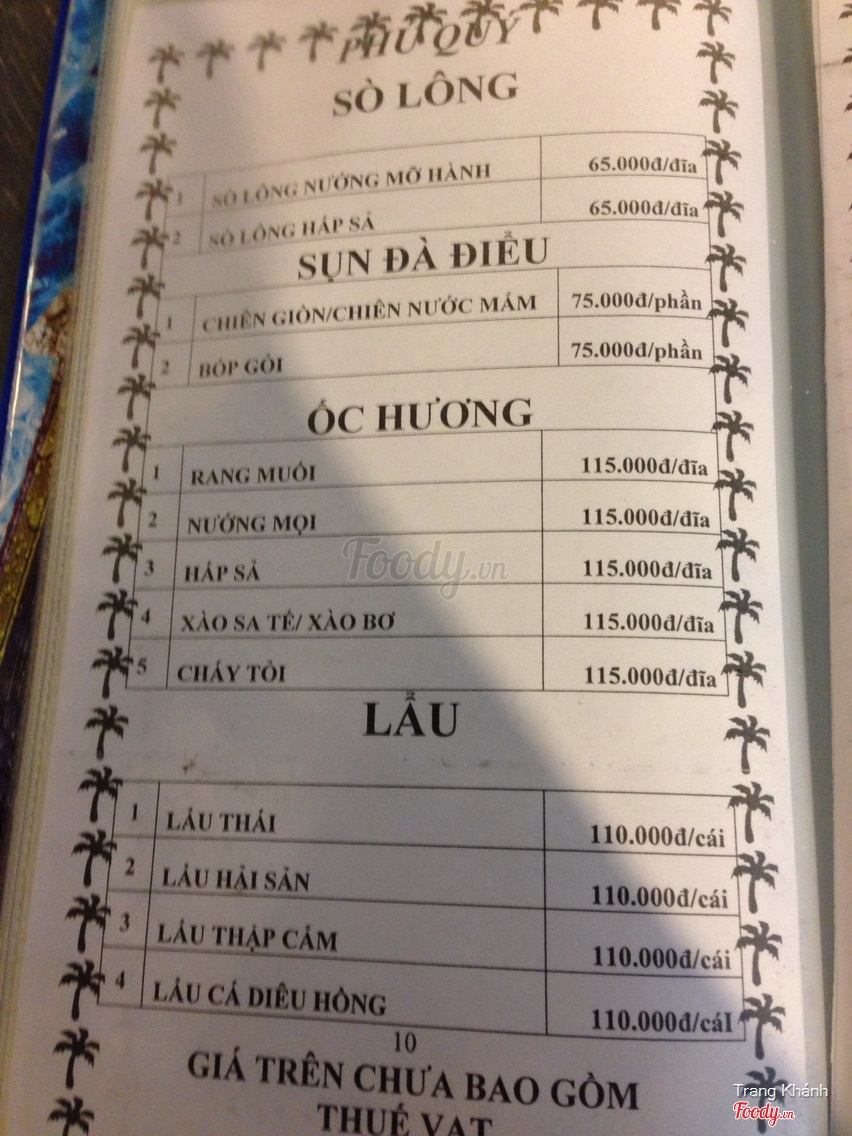 PHÚ QUÝ
SÒ LÔNG
1 SÒ LÔNG NƯỚNG MỠ HÀNH 65.000đ/đĩa
2 SÒ LÔNG HẤP SẢ 65.000đ/đĩa
SỤN ĐÀ ĐIỂU
1 CHIÊN GIÒN/CHIÊN NƯỚC MẮM 75.000đ/phần
2 BÓP GỎI 75.000đ/phần
ỐC HƯƠNG
1 RANG MUỐI 115.000đ/đĩa
2 NƯỚNG MỌI 115.000đ/đĩa
3 HẤP SẢ 115.000đ/đĩa
4 XÀO SA TẾ/ XÀO BƠ 115.000đ/đĩa
5 CHÁY TỎI 115.000đ/đĩa
Foody.vn
LẨU
1 LẨU THÁI 110.000đ/cái
2 LẨU HẢI SẢN 110.000đ/cái
3 LẨU THẬP CẨM 110.000đ/cái
4 LẨU CÁ DIÊU HỒNG 110.000đ/cáI
10
GIÁ TRÊN CHƯA BAO GỒM
THUẾ VAT
Trang Khánh
Foody.vn